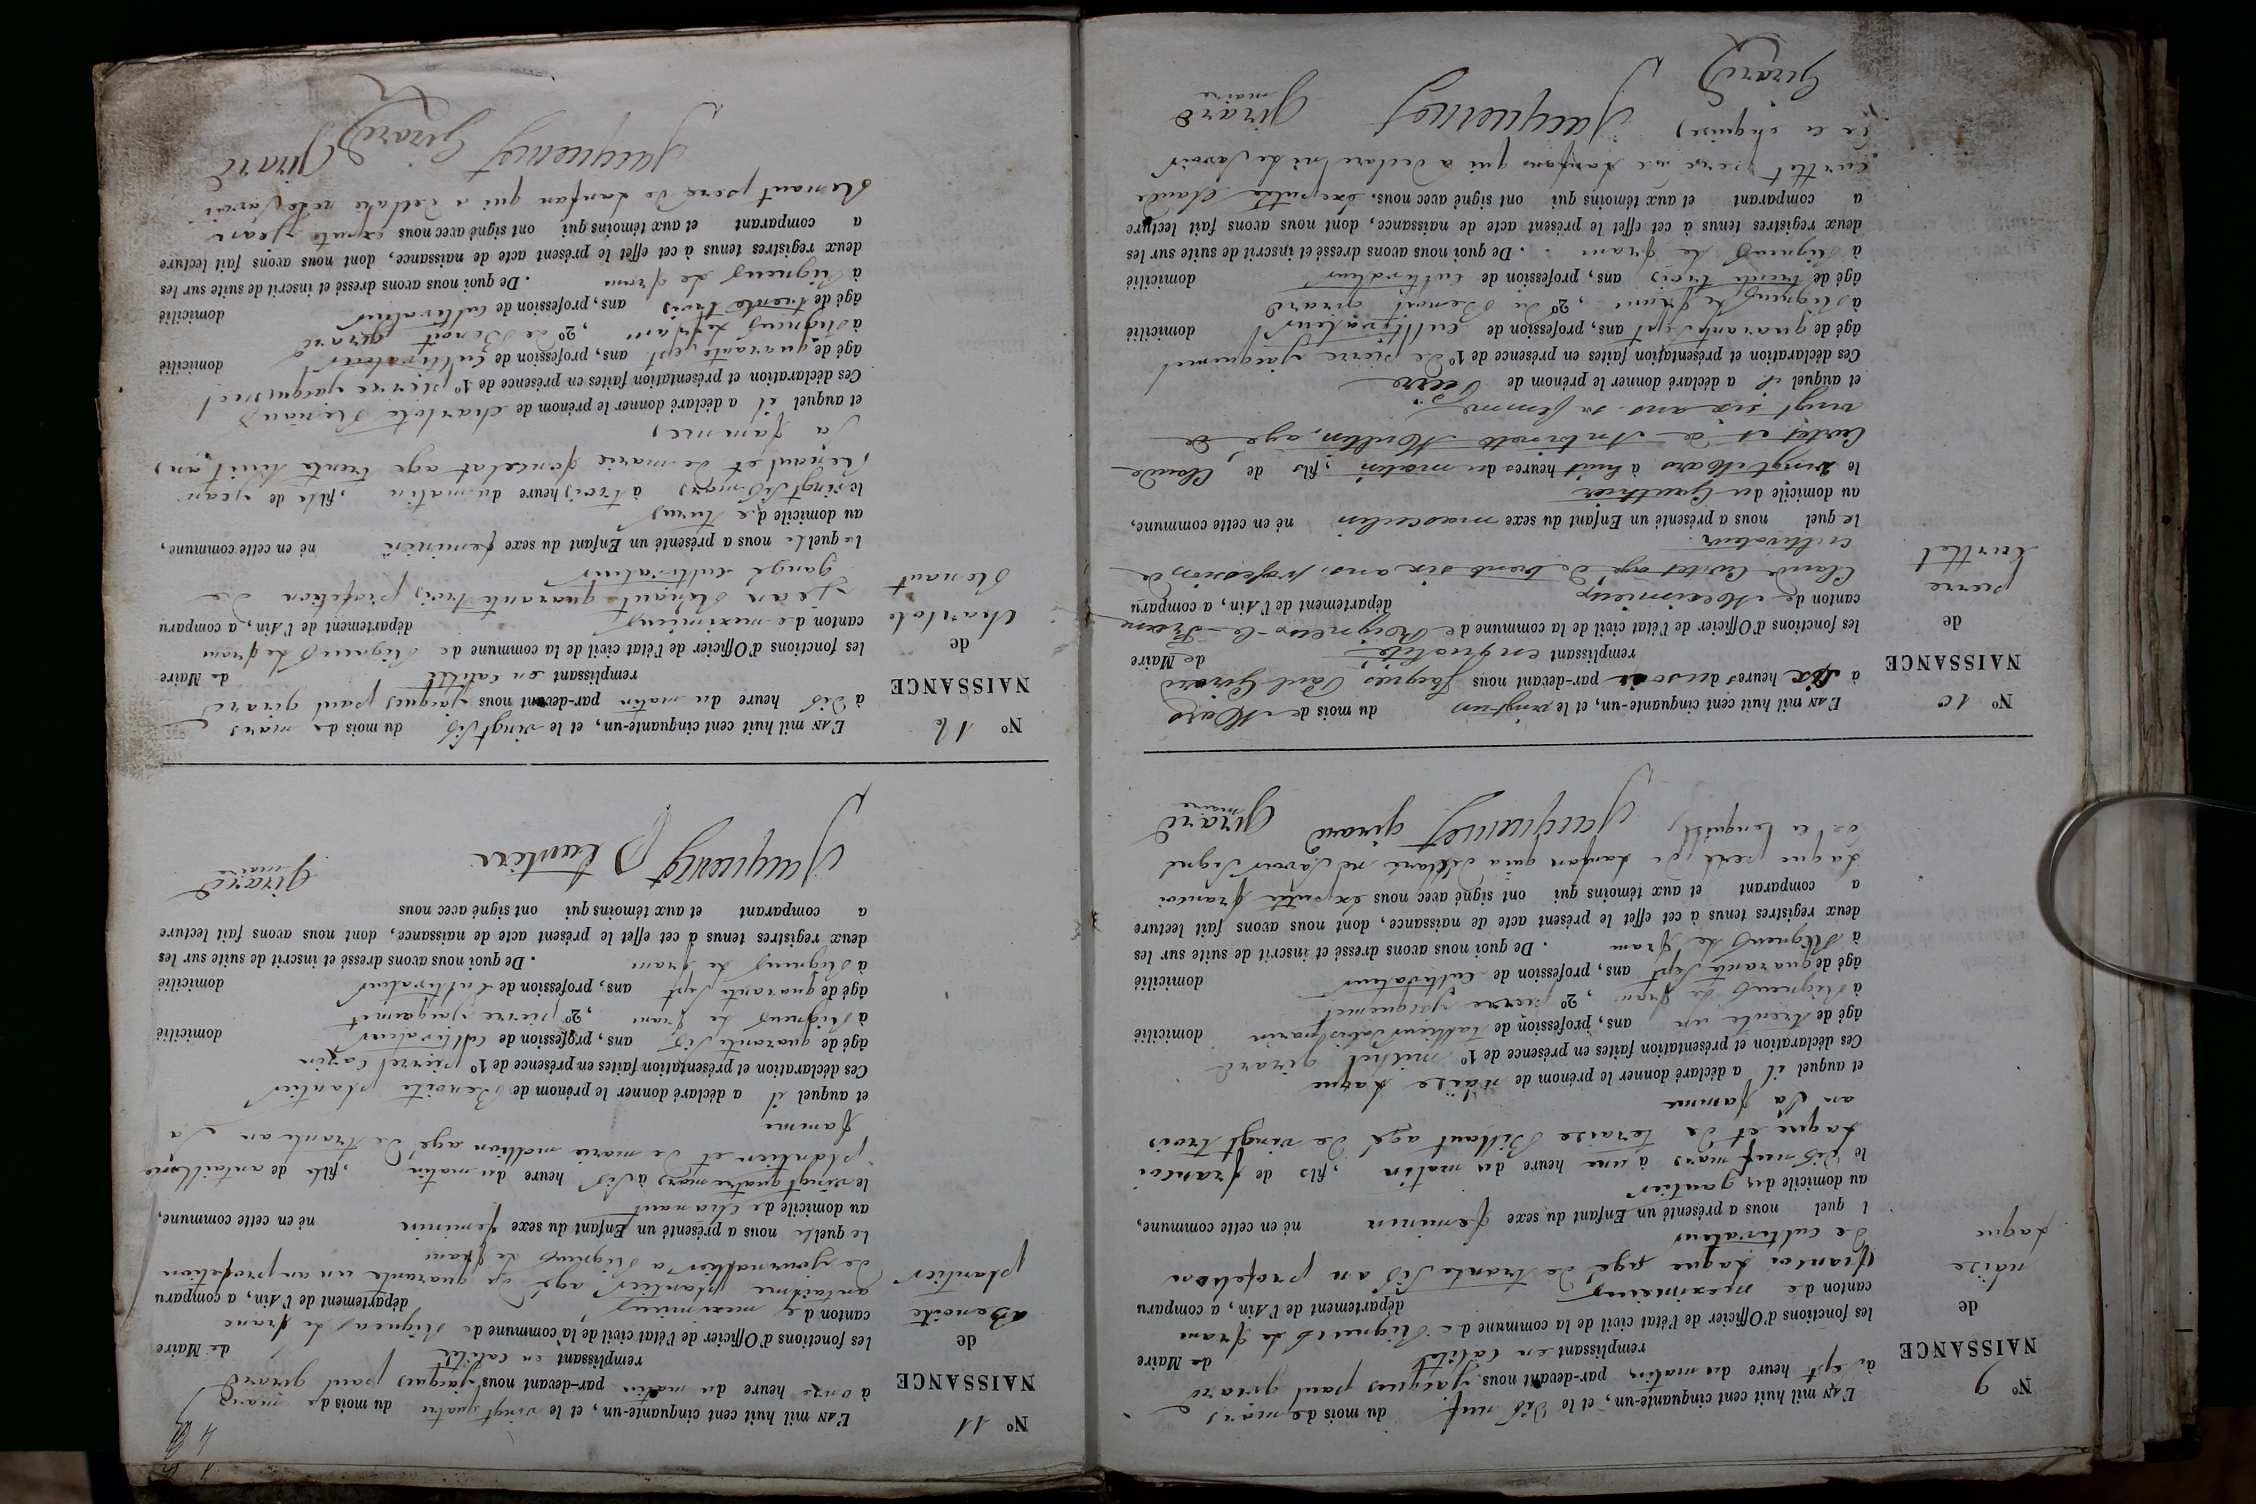 N° 9
NAISSANCE
de
naise
Laque
L'AN mil huit cent cinquante-un, et le dis neuf du mois de mars
à sept heure du matin par-devant nous jacques paul girard
remplissant en calité de Maire
les fonctions d'Officier de l'état civil de la commune de Rigneus le fran
canton de meximieus département de l'Ain, a comparu
francoi Laque agé de trante sis an profetion
de cultivateur
lequel nous a présenté un Enfant du sexe feminin né en cette commune,
au domicile du gautier
le dis neuf mars à une heure du matin, fils de francoi
Laque et de teraise Billant agé de vingt trois
an Sa famme
et auquel il a déclaré donner le prénom de naise Laque
Ces déclaration et présentation faites en présence de 1° michel girard
âgé de trente un ans, profession de domicilié
à Rigneus le fran, 2° pierre jacquemet
âgé de quarante sept ans, profession de cultivateur domicilié
à Rigneus le fran. De quoi nous avons dressé et inscrit de suite sur les
deux registres tenus à cet effet le présent acte de naissance, dont nous avons fait lecture
a comparant et aux témoins qui ont signé avec nous francoi
Laque pere de Lanfan qui a dellaré ne Savoir Signé
de ce
Jacquemet girard Girard
maire
N° 10
NAISSANCE
de
pierre
Curttet
L'AN mil huit cent cinquante-un, et le vingt-un du mois de Mars
à six heures du soir par-devant nous Jacques Paul Girard
remplissant en qualité de Maire
les fonctions d'Officier de l'état civil de la commune de Rigneux-le-Franc
canton de Meximieux département de l'Ain, a comparu
Claude Curtet agé de trente six ans, profession de
cultivateur.
lequel nous a présenté un Enfant du sexe masculin né en cette commune,
au domicile du Gauthier
le vingt Mars à huit heures du matin, fils de Claude
Curtet et de Antoinette Moullon, agé de
vingt six ans. sa femme
et auquel il a déclaré donner le prénom de Pierre
Ces déclaration et présentation faites en présence de 1° de pierre jacquemet
âgé de quarante sept ans, profession de cultivateur domicilié
à Rigneus le franc, 2° du Benoit girard
âgé de trente trois ans, profession de cultivateur domicilié
à Rigneus le fran. De quoi nous avons dressé et inscrit de suite sur les
deux registres tenus à cet effet le présent acte de naissance, dont nous avons fait lecture
a comparant et aux témoins qui ont signé avec nous. Claude
Curttet pere de Lanfans qui a déclaré ni de Savoir
de ce
Jacquemet Girard
maire
Girard
N° 11
NAISSANCE
de
Benoite
plantier
L'AN mil huit cent cinquante-un, et le vingt quatre du mois de mars
à onze heure du matin par-devant nous jacques paul girard
remplissant en calité de Maire
les fonctions d'Officier de l'état civil de la commune de Rigneus le franc
canton de meximieus département de l'Ain, a comparu
antailme plantier agé de quarante un an profetion
de journallier a Rigneus le fran
lequelle nous a présenté un Enfant du sexe feminin né en cette commune,
au domicile de chanaut
le vingt quatre mars à sis heure du matin, fils de antailme
plantier et de marie mollion agé de trante an sa
famme
et auquel il a déclaré donner le prénom de Benoite plantier
Ces déclaration et présentation faites en présence de 1° pierre Cazin
âgé de quarante sis ans, profession de cultivateur domicilié
à Rigneus le fran, 2° pierre jacquemet
âgé de quarante sept ans, profession de cultivateur domicilié
à Rigneus le fran. De quoi nous avons dressé et inscrit de suite sur les
deux registres tenus à cet effet le présent acte de naissance, dont nous avons fait lecture
a comparant et aux témoins qui ont signé avec nous
Jacquemet Plantier Girard
maire
N° 12
NAISSANCE
de
Charlote
Renaut
L'AN mil huit cent cinquante-un, et le vingt sis du mois de mars
à dis heure du matin par-devant nous jacques paul girard
remplissant en calité de Maire
les fonctions d'Officier de l'état civil de la commune de Rigneus le fran
canton de meximieus département de l'Ain, a comparu
Jean Renaut quarante trois profetion de
cultivateur
lequelle nous a présenté un Enfant du sexe feminin né en cette commune,
au domicile de
le vingt sis mars à trois heure du matin, fils de jean
Renaut et de marie goncelat age trente huit an,
sa famme,
et auquel il a déclaré donner le prénom de charlote Renaud
Ces déclaration et présentation faites en présence de 1° pierre jacquemet
âgé de quarante sept ans, profession de cultivateur domicilié
à Rigneus le fran, 2° de Benoit girard
âgé de trente trois ans, profession de cultivateur domicilié
à Rigneus le fran. De quoi nous avons dressé et inscrit de suite sur les
deux registres tenus à cet effet le présent acte de naissance, dont nous avons fait lecture
a comparant et aux témoins qui ont signé avec nous jean
Renaut pere de Lanfan qui a dellaré ne de Savoir
Jacquemet Girard Girard